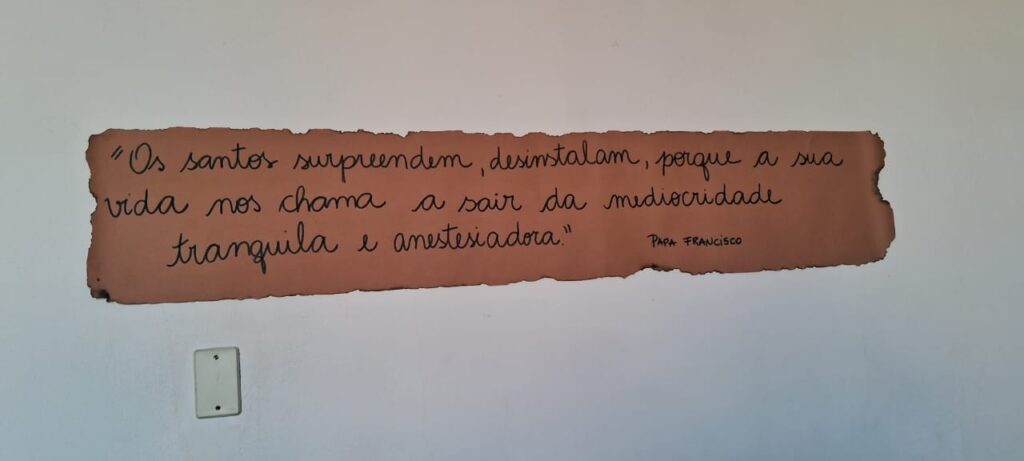 "Os santos surpreendem, desinstalam, porque a sua
vida nos chama a sair da mediocridade
tranquila e anestesiadora."
PAPA FRANCISCO